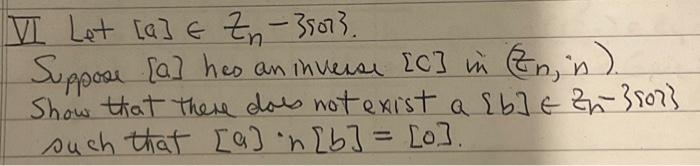 VI Let [a] ∈ Zn - {[0]}.
Suppose [a] has an inverse [c] in (Zn, ·n).
Show that there does not exist a [b] ∈ Zn - {[0]}
such that [a] ·n [b] = [0].